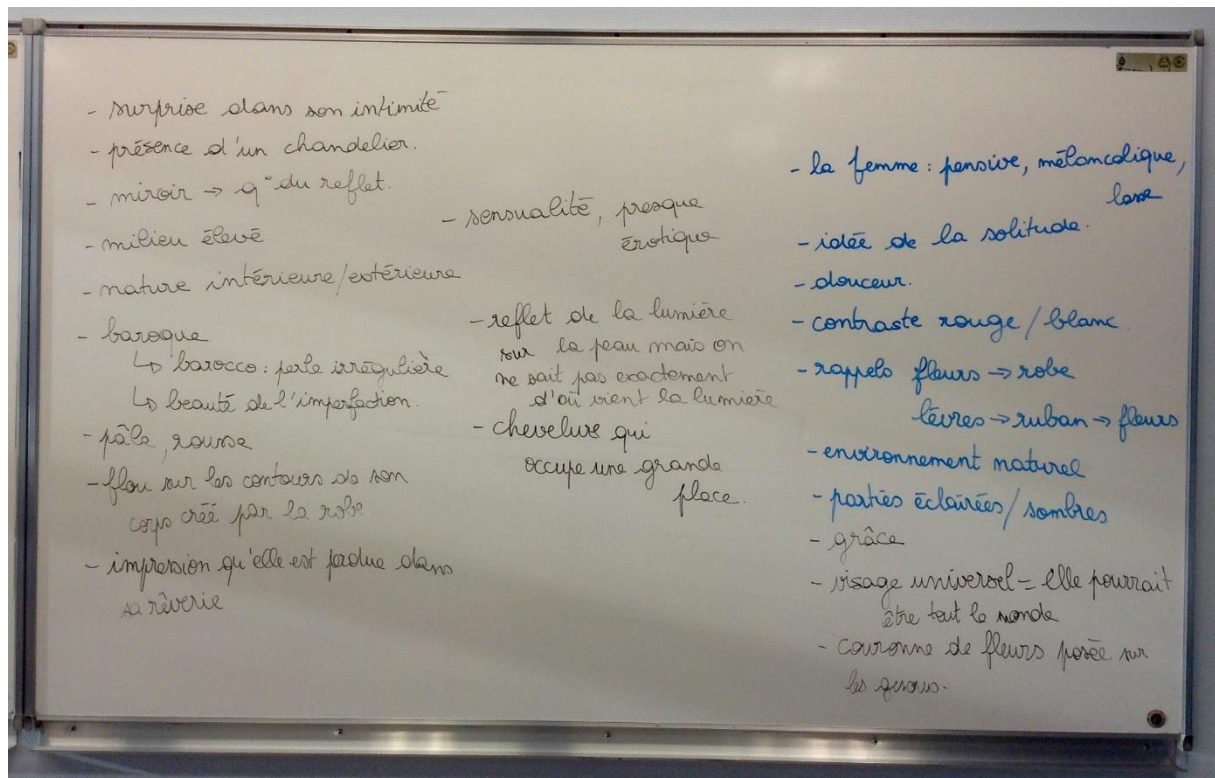 - surprise dans son intimité
- présence d'un chandelier.
- miroir → q° du reflet.
- milieu élevé
- nature intérieure/extérieure
- baroque
↳ barocco : perle irrégulière
↳ beauté de l'imperfection.
- pâle, rousse
- flou sur les contours de son
corps créé par la robe
- impression qu'elle est perdue dans
sa rêverie
- sensualité, presque
érotique
- reflet de la lumière
sur la peau mais on
ne sait pas exactement
d'où vient la lumière
- chevelure qui
occupe une grande
place.
- la femme : pensive, mélancolique,
lasse
- idée de la solitude.
- douceur.
- contraste rouge / blanc.
- rappels fleurs → robe
lèvres → ruban → fleurs
- environnement naturel
- parties éclairées / sombres
- grâce
- visage universel = elle pourrait
être tout le monde
- couronne de fleurs posée sur
les genoux.